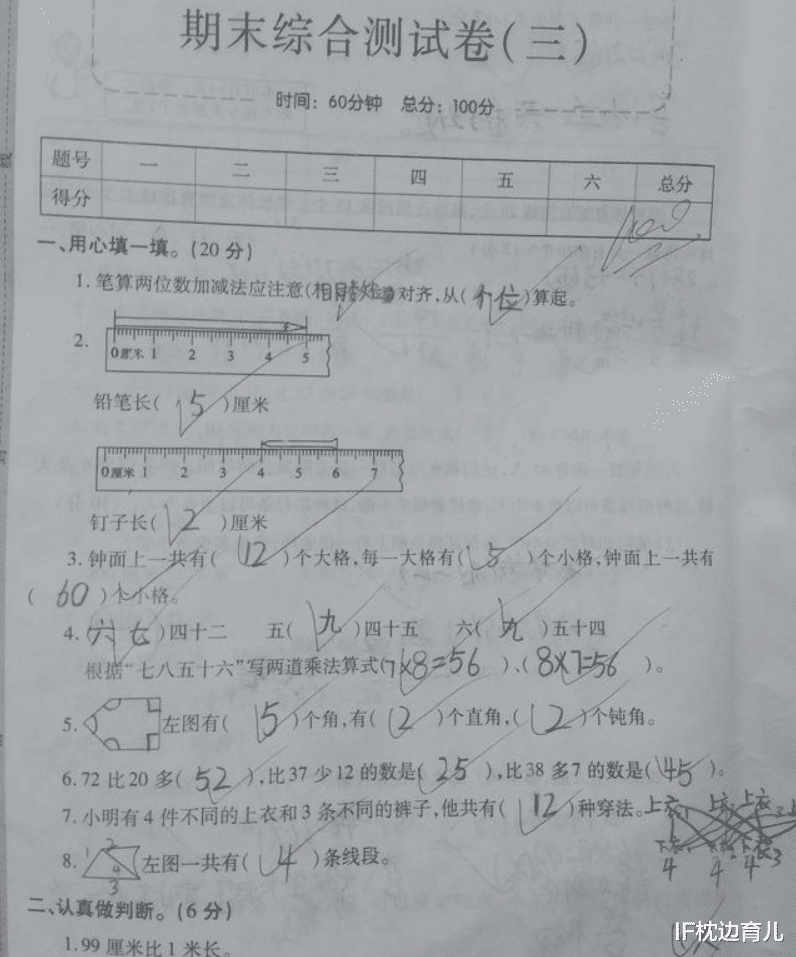 期末综合测试卷(三)
时间：60分钟 总分：100分
题号 一 二 三 四 五 六 总分
得分 100
一、用心填一填。(20分)
1.笔算两位数加减法应注意(相同数位)对齐,从(个位)算起。
2.
0厘米 1 2 3 4 5
铅笔长(5)厘米
0厘米 1 2 3 4 5 6 7
钉子长(2)厘米
3.钟面上一共有(12)个大格,每一大格有(5)个小格,钟面上一共有
(60)个小格。
4.(六七)四十二 五(九)四十五 六(九)五十四
根据“七八五十六”写两道乘法算式(7×8=56)、(8×7=56)。
5. 左图有(5)个角,有(2)个直角,(2)个钝角。
6.72比20多(52),比37少12的数是(25),比38多7的数是(45)。
7.小明有4件不同的上衣和3条不同的裤子,他共有(12)种穿法。上衣 上衣 上衣
4 4 4
8. 1 2 4 3 左图一共有(4)条线段。
二、认真做判断。(6分)
1.99厘米比1米长。
IF枕边育儿